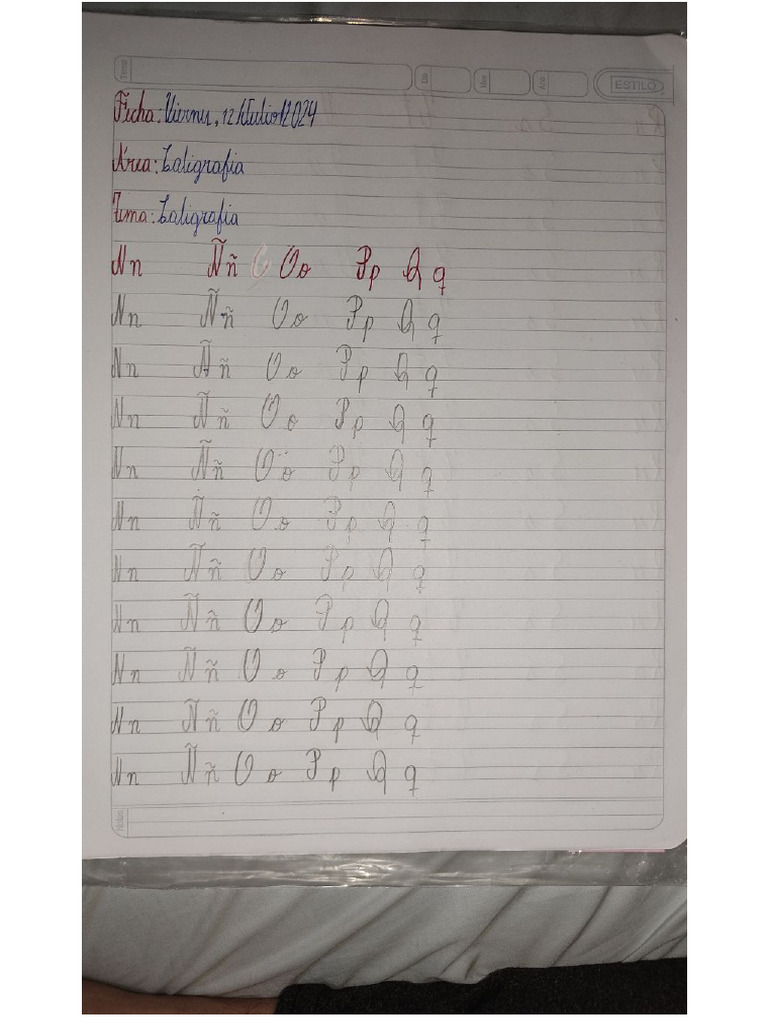 Tema Día Mes Año ESTILO
Fecha: Viernes, 12/Julio/2024
Área: Caligrafia
Tema: Caligrafia
Nn Ññ Oo Pp Qq
Nn Ññ Oo Pp Qq
Nn Ññ Oo Pp Qq
Nn Ññ Oo Pp Qq
Nn Ññ Oo Pp Qq
Nn Ññ Oo Pp Qq
Nn Ññ Oo Pp Qq
Nn Ññ Oo Pp Qq
Nn Ññ Oo Pp Qq
Nn Ññ Oo Pp Qq
Nn Ññ Oo Pp Qq
Notas